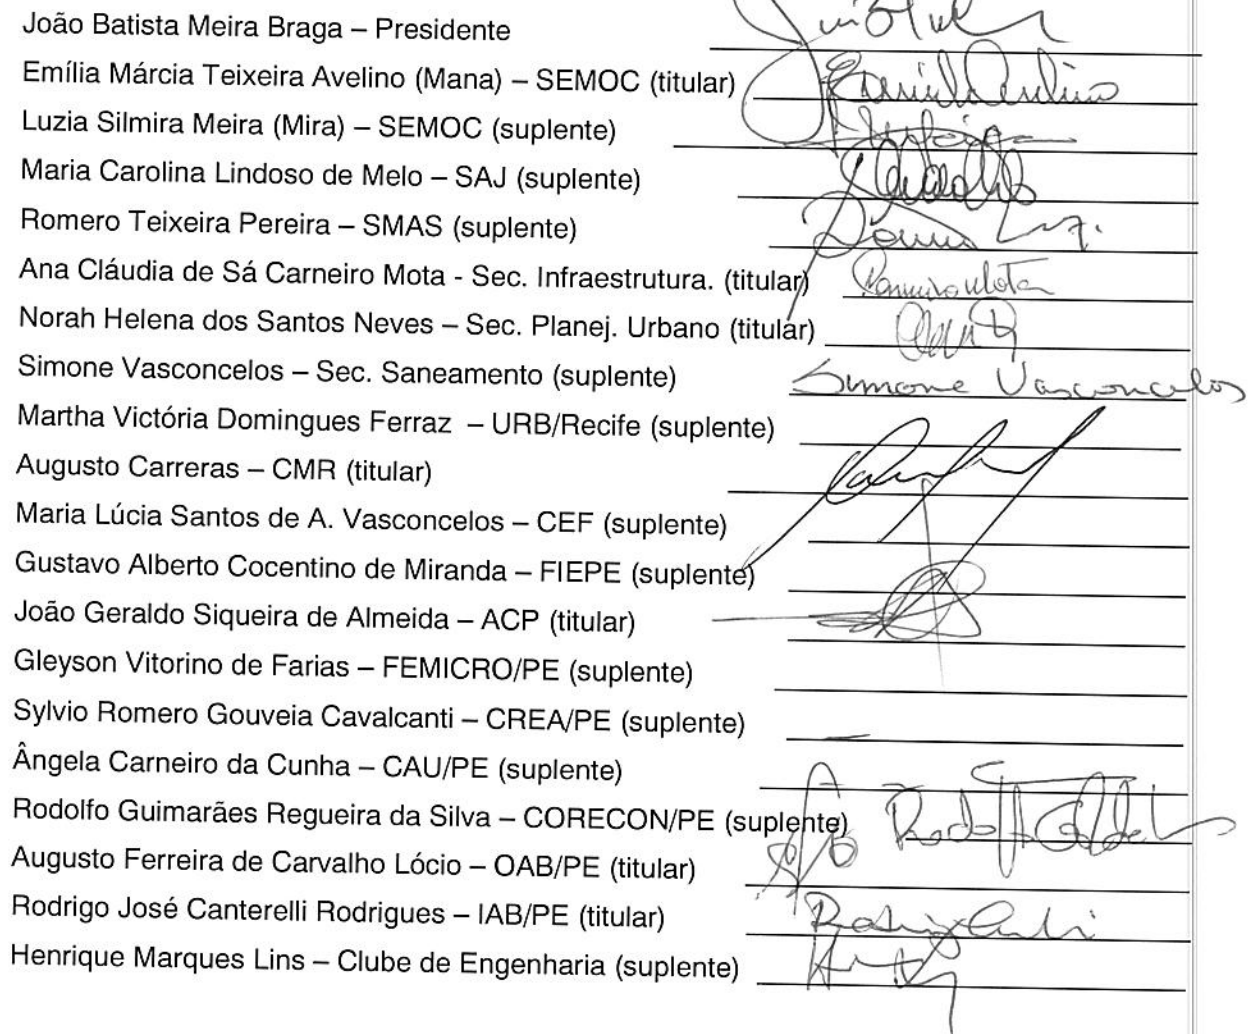 João Batista Meira Braga – Presidente
Emília Márcia Teixeira Avelino (Mana) – SEMOC (titular)
Luzia Silmira Meira (Mira) – SEMOC (suplente)
Maria Carolina Lindoso de Melo – SAJ (suplente)
Romero Teixeira Pereira – SMAS (suplente)
Ana Cláudia de Sá Carneiro Mota - Sec. Infraestrutura. (titular)
Norah Helena dos Santos Neves – Sec. Planej. Urbano (titular)
Simone Vasconcelos – Sec. Saneamento (suplente) Simone Vasconcelos
Martha Victória Domingues Ferraz – URB/Recife (suplente)
Augusto Carreras – CMR (titular)
Maria Lúcia Santos de A. Vasconcelos – CEF (suplente)
Gustavo Alberto Cocentino de Miranda – FIEPE (suplente)
João Geraldo Siqueira de Almeida – ACP (titular)
Gleyson Vitorino de Farias – FEMICRO/PE (suplente)
Sylvio Romero Gouveia Cavalcanti – CREA/PE (suplente)
Ângela Carneiro da Cunha – CAU/PE (suplente)
Rodolfo Guimarães Regueira da Silva – CORECON/PE (suplente)
Augusto Ferreira de Carvalho Lócio – OAB/PE (titular)
Rodrigo José Canterelli Rodrigues – IAB/PE (titular)
Henrique Marques Lins – Clube de Engenharia (suplente)